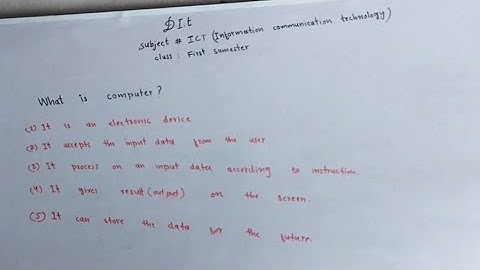 D I.t
Subject # ICT (Information communication technology)
class : First Samester
What is computer?
(1) It is an electronic device
(2) It accepts the input data from the user
(3) It process on an input data according to instruction.
(4) It gives result (out put) on the screen.
(5) It can store the data for the future.